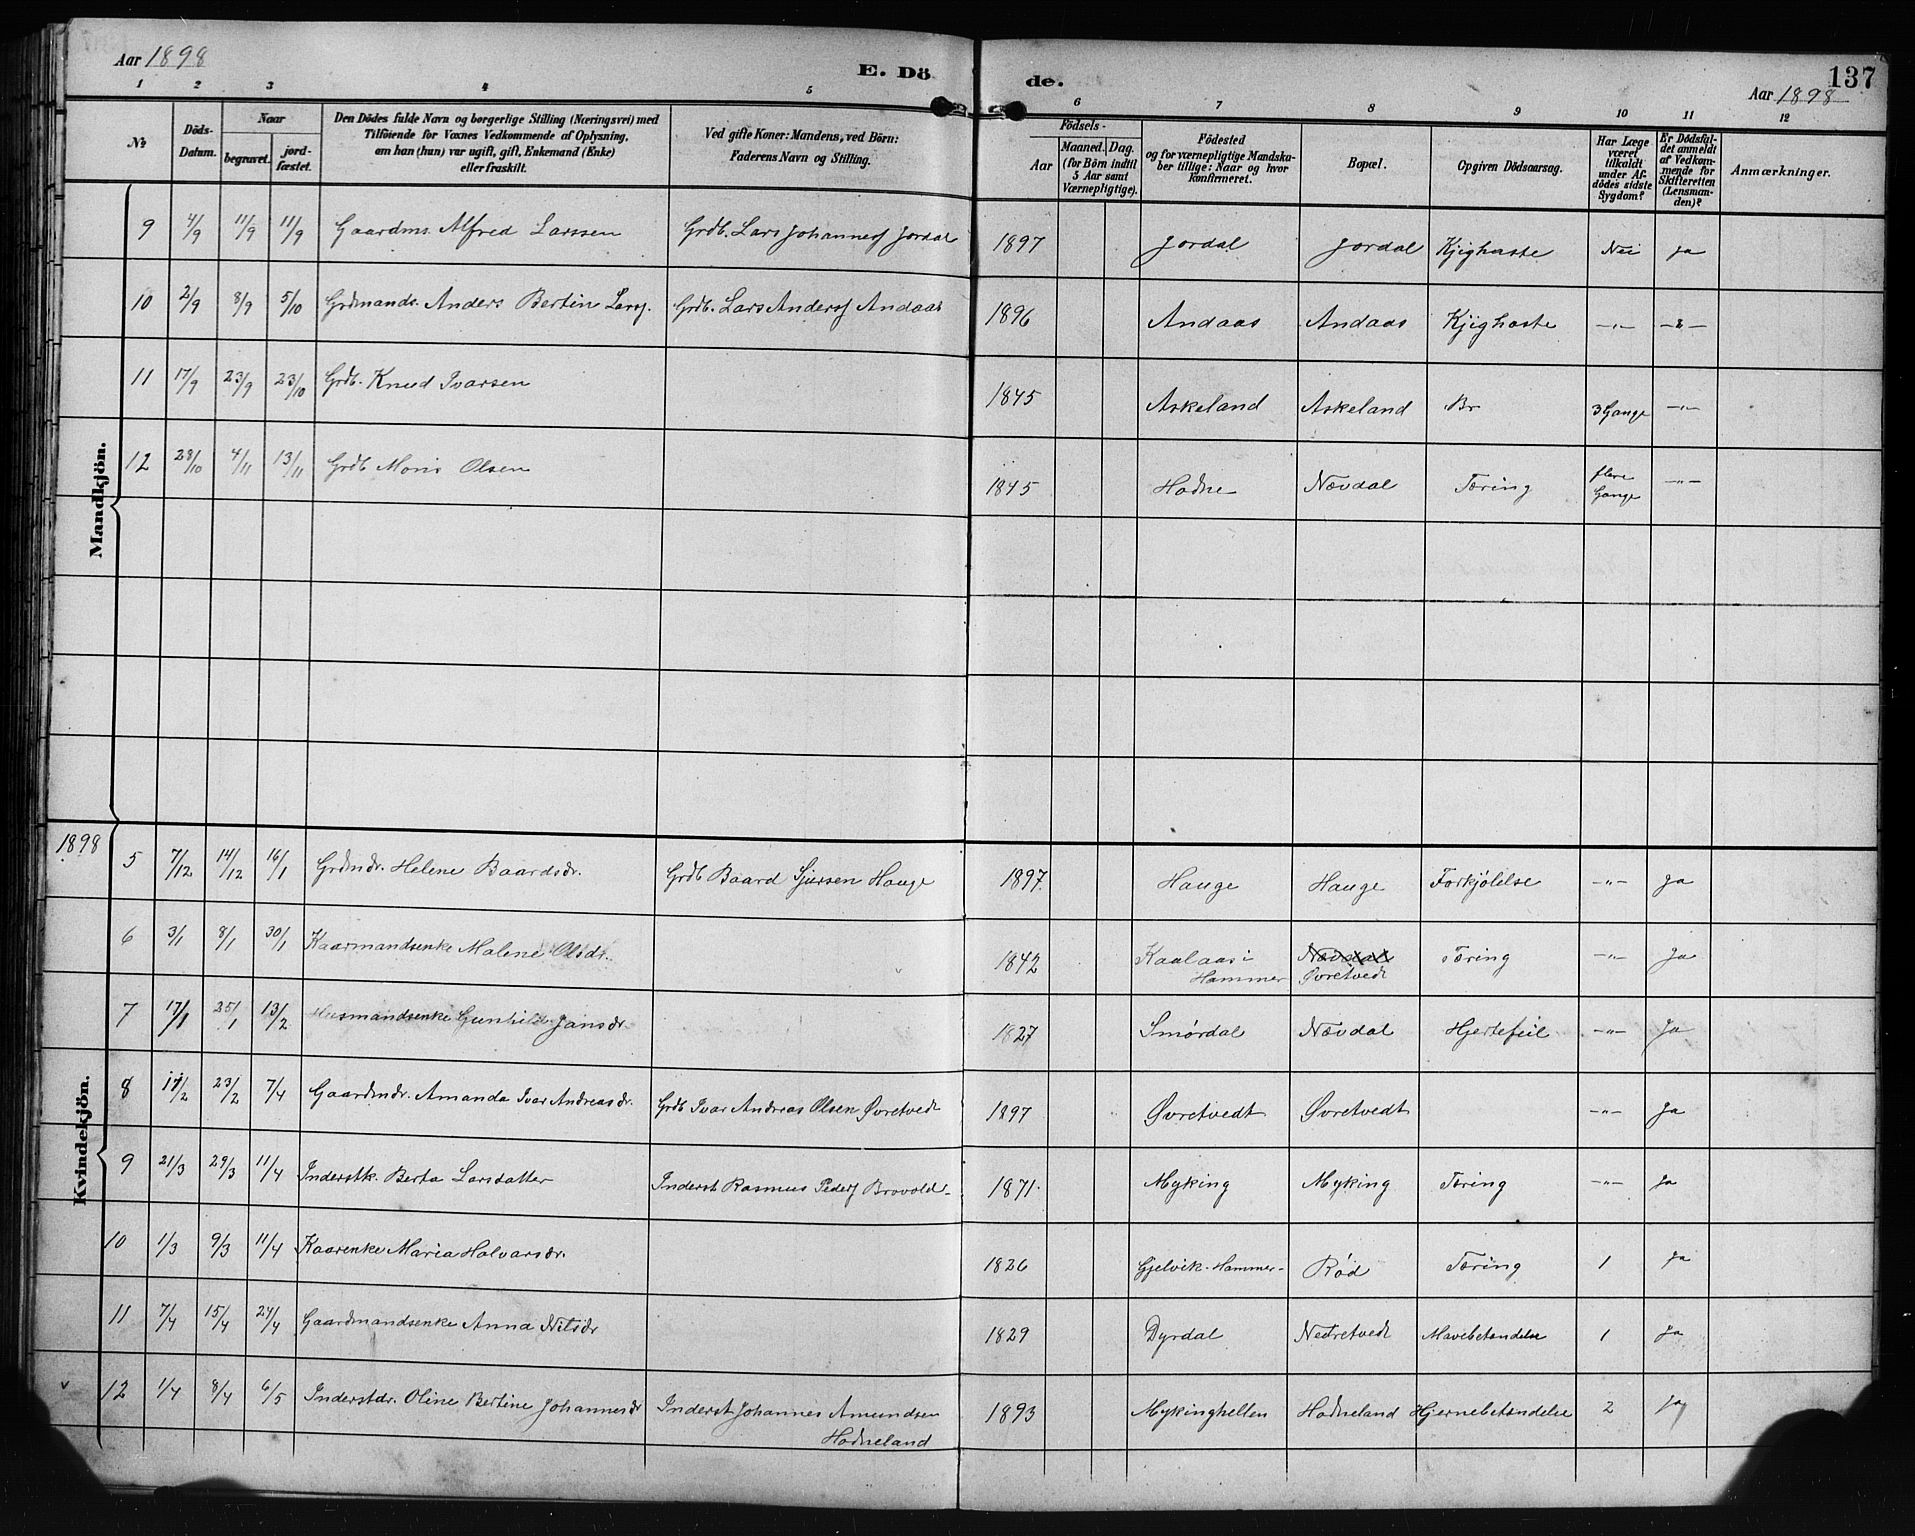 Aar 1898
E. Dö
de.
137
Aar 1898
1 2 3 4 5 6 7 8 9 10 11 12
№
Döds-
Datum.
Naar
begravet.
jord-
fæstet.
Den Dödes fulde Navn og borgerlige Stilling (Næringsvei) med
Tilföiende for Voxnes Vedkommende af Oplysning,
om han (hun) var ugift, gift, Enkemand (Enke)
eller fraskilt.
Ved gifte Koner: Mandens, ved Börn:
Faderens Navn og Stilling.
Födsels-
Aar
Maaned. Dag.
(for Börn indtil
5 Aar samt
Værnepligtige).
Födested
og for værnepligtige Mandska-
ber tillige: Naar og hvor
konfirmeret.
Bopæl.
Opgiven Dödsaarsag.
Har Læge
været
tilkaldt
under Af-
dödes sidste
Sygdom?
Er Dödsfal-
det anmeldt
af Vedkom-
mende for
Skifteretten
(Lensman-
den)?
Anmærkninger.
Mandkjön.
9 4/9 11/9 11/9 Gaardms. Alfred Larssen Grdb. Lars Johannesf Jordal 1897 Jordal Jordal Kjighoste Nei Ja
10 2/9 8/9 5/10 Grdmands. Anders Bertin Larsf. Grdb. Lars Andersf Andaas 1896 Andaas Andaas Kjighoste -"- -"-
11 17/9 23/9 23/10 Grdb. Knud Ivarsen 1845 Askeland Askeland Br 3 Gange -"-
12 28/10 4/11 13/11 Grdb Monis Olsen 1845 Hodne Nævdal Tæring flere
Gange -"-
1898
Kvindekjön.
5 7/12 14/12 16/1 Grdmdr. Helene Baardsdr. Grdb Baard Sjursen Hauge 1897. Hauge Hauge Forkjölelse -"- Ja
6 3/1 8/1 30/1 Kaarmandsenke Malene Olsdr. 1842 Kaalaas i
Hammer Nævdal
Øvretvedt Tæring -"- Ja
7 17/1 25/1 13/2 Husmandsenke Gunhild Jansdr. 1827 Smørdal Nævdal Hjertefeil -"- Ja
8 17/2 23/2 7/4 Gaardmdr. Amanda Ivar Andreasdr. Grdb Ivar Andreas Olsen Øvretvedt 1897 Øvretvedt Øvretvedt -"- Ja
9 21/3 29/3 11/4 Inderstk. Berta Larsdatter Inderst Rasmus Pedersf Brovold 1871. Myking Myking Tæring -"- Ja
10 1/3 9/3 11/4 Kaarenke Maria Halvarsdr. 1826 Gjelvik-Hammer- Rød Tæring 1 Ja
11 7/4 15/4 24/4 Gaardmandsenke Anna Nilsdr 1829 Dyrdal Nedretvedt Mavebetændelse 1 Ja
v 12 1/4 8/4 6/5 Inderstdr. Oline Bertine Johannesdr Inderst Johannes Amundsen
Hodneland 1893 Mykinghelten Hodneland Hjernebetændelse 2 Ja